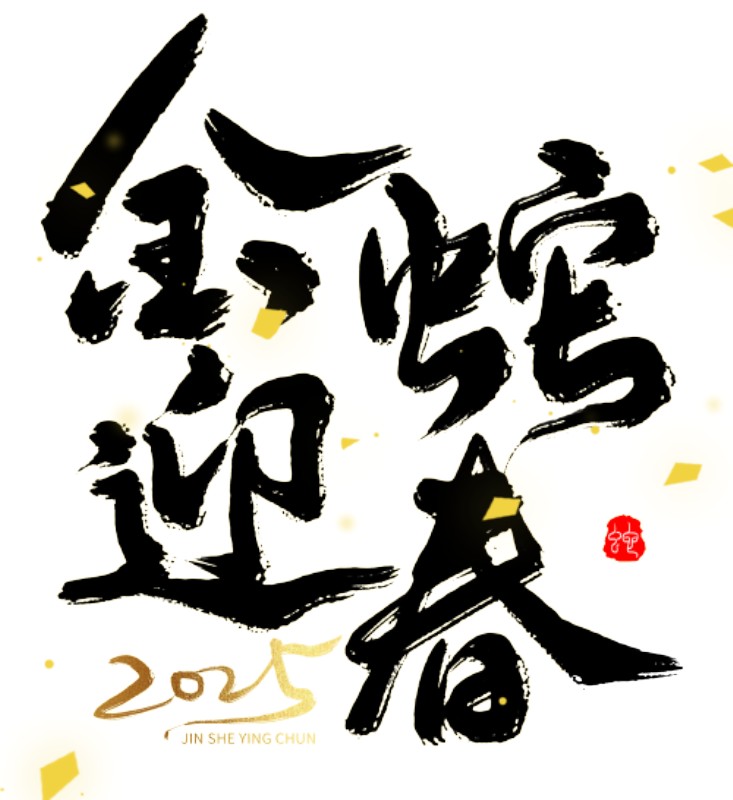 金蛇
迎春
蛇
2025
JIN SHE YING CHUN